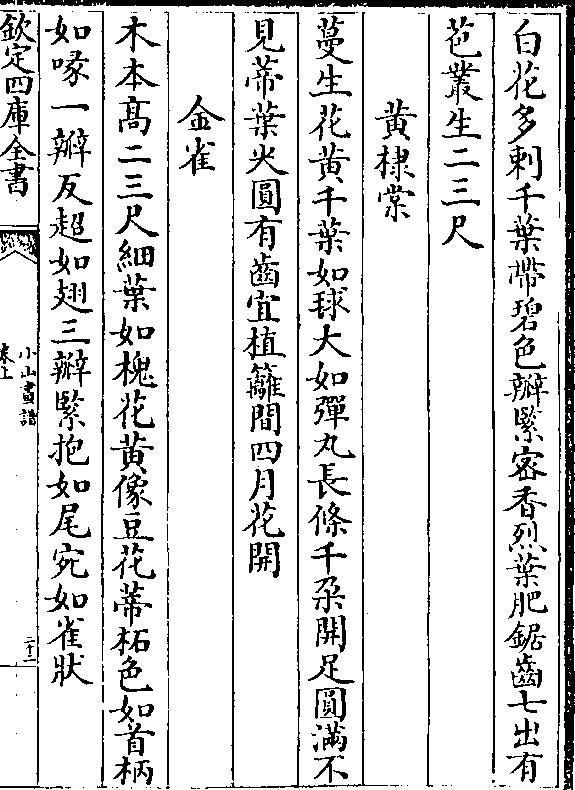 白花多刺千葉帶碧色瓣緊密香烈葉肥鋸齒七出有
芭叢生二三尺
黄棣棠
蔓生花黄千葉如球大如彈丸長條千朶開足圓滿不
見蒂葉火圓有齒宜植籬間四月花開
金雀
木本高二三尺細葉如槐花黄像豆花蒂柘色如首柄
如喙一瓣反超如翅三瓣緊抱如尾宛如雀狀
欽定四庫全書
小山畫譜
卷上
二十二